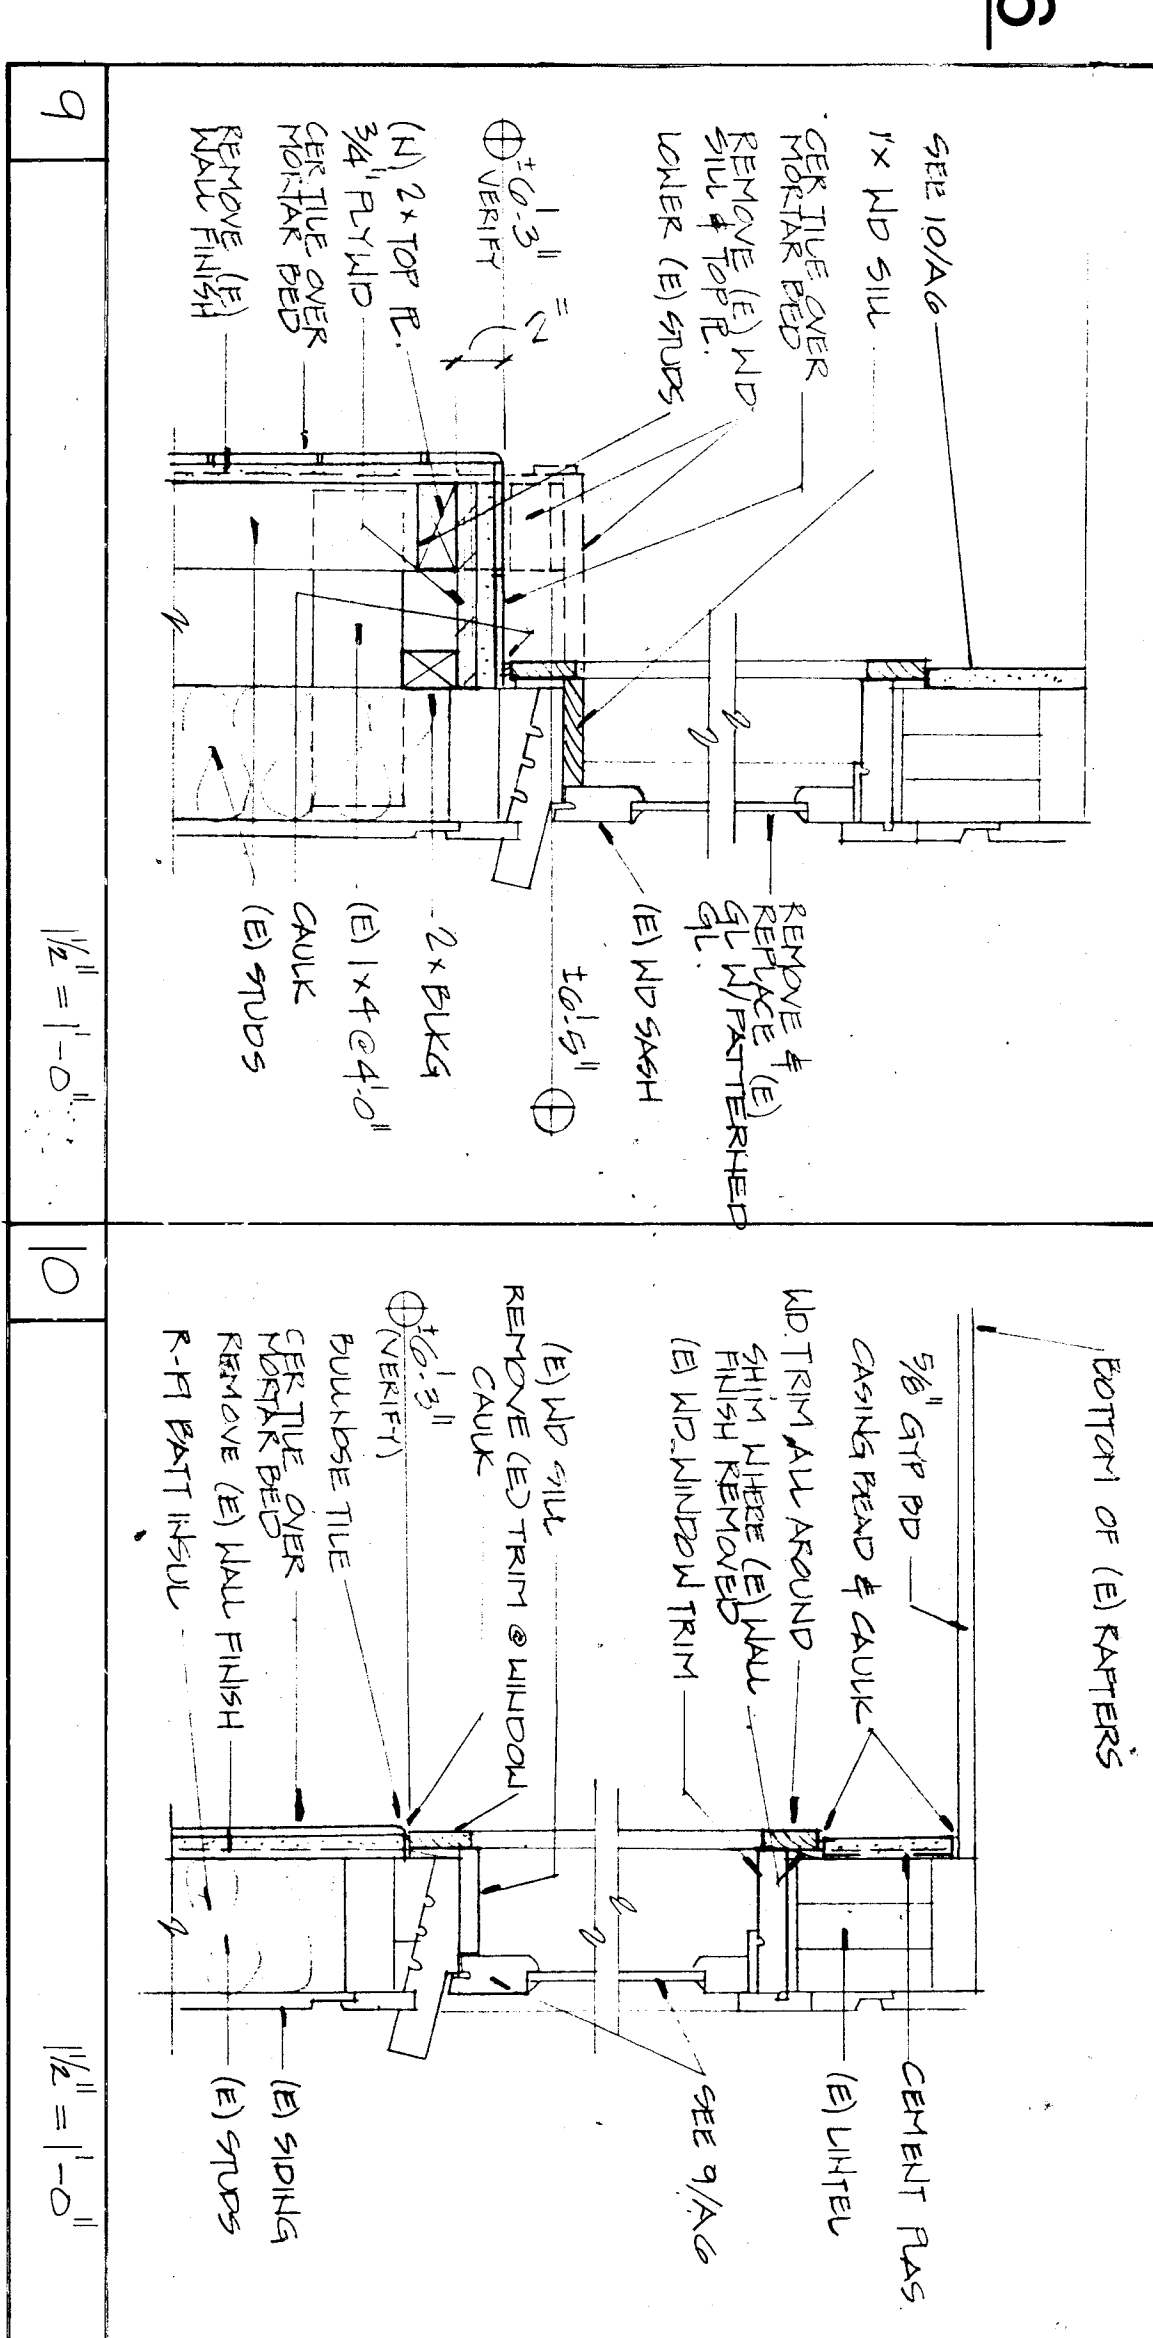 6
SEE 10/A6
1x WD SILL
CER TILE OVER
MORTAR BED
REMOVE (E) WD
SILL & TOP PL.
LOWER (E) STUDS
±6'-3" = N
VERIFY
(N) 2x TOP PL.
3/4" PLYWD
CER TILE OVER
MORTAR BED
REMOVE (E)
WALL FINISH
REMOVE &
REPLACE (E)
GL W/ PATTERNED
GL.
(E) WD SASH
±6'-5"
2x BLKG
(E) 1x4 @ 4'-0"
CAULK
(E) STUDS
9
1 1/2" = 1'-0"
BOTTOM OF (E) RAFTERS
5/8" GYP BD
CASING BEAD & CAULK
WD. TRIM ALL AROUND
SHIM WHERE (E) WALL
FINISH REMOVED
(E) WD. WINDOW TRIM
(E) WD SILL
REMOVE (E) TRIM @ WINDOW
CAULK
±6'-3"
(VERIFY)
BULLNOSE TILE
CER TILE OVER
MORTAR BED
REMOVE (E) WALL FINISH
BATT INSUL
CEMENT PLAS
(E) LINTEL
SEE 9/A6
(E) SIDING
(E) STUDS
10
1 1/2" = 1'-0"